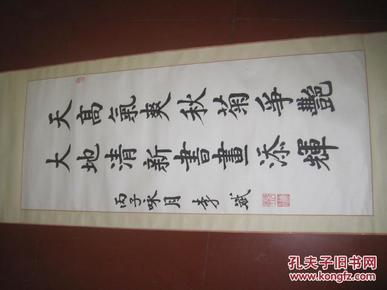 天高氣爽秋菊爭艷
大地清新書畫添輝
丙子秋月 李斌
孔夫子旧书网